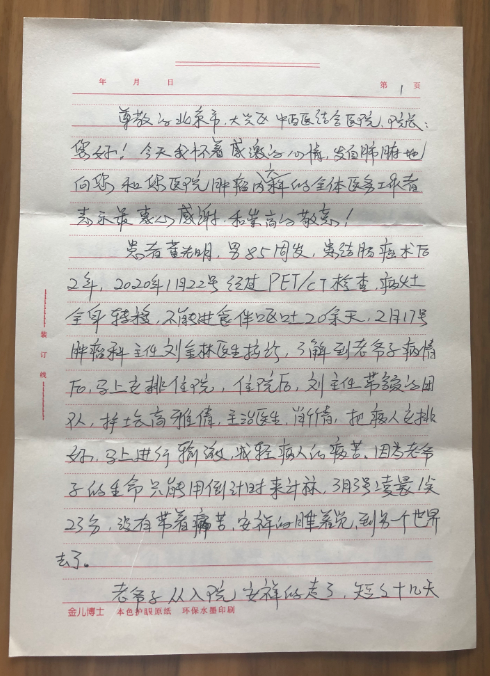 年 月 日 第 1 页
尊敬的北京市,大兴区中西医结合医院,院长:
您好!今天我怀着感激的心情,发自肺腑地
向您和您医院肿瘤内科的全体医务工作者
表示最衷心感谢,和崇高的敬意!
患者黄光明,男85周岁,患结肠癌术后
2年,2020年1月22号经过PET/CT检查,病灶
全身转移,不能进食伴呕吐20余天,2月17号
肿瘤科主任刘金林医生接诊,了解到老爷子病情
后,马上安排住院,住院后,刘主任带领的团
队,护士长高雅倩,主治医生,肖倩,把病人安排
好,马上进行输液,减轻病人的痛苦,因为老爷
子的生命只能用倒计时来计标,3月3号凌晨1点
23分,没有带着痛苦,安祥的睡着觉,到另一个世界
去了。
老爷子从入院安祥的走了,短短十几天
装订线
金儿博士 本色护眼原纸 环保水墨印刷